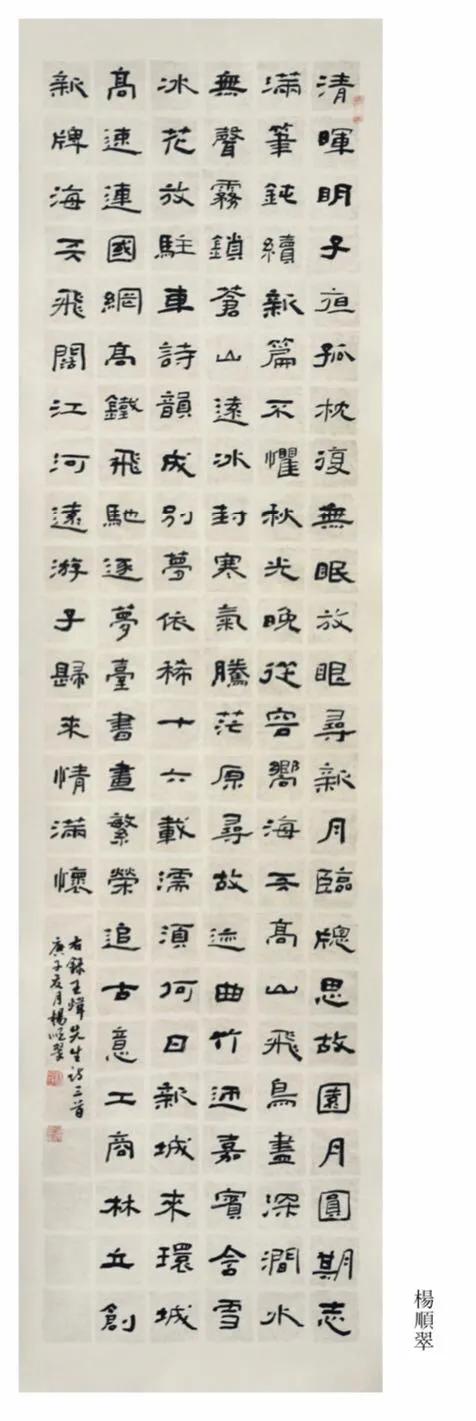 清暉明子夜孤枕復無眠放眼尋新月臨牕思故園月圓期志
滿筆鈍續新篇不懼秋光晚從容嚮海天高山飛鳥盡深澗水
無聲霧鎖蒼山遠冰封寒氣騰茫原尋故迹曲竹迎嘉賓含雪
冰花放駐車詩韻成別夢依稀十六載濡須何日新城來環城
高速連國網高鐵飛馳逐夢臺書畫繁榮追古意工商林立創
新牌海天飛闊江河遠游子歸來情滿懷
右錄王煒先生詩三首
庚子夏月楊順翠
楊順翠